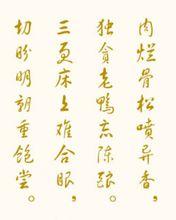 肉烂骨松喷异香，
独贪老鸭忘陈酿。
三更床上难合眼，
切盼明朝重饱尝。